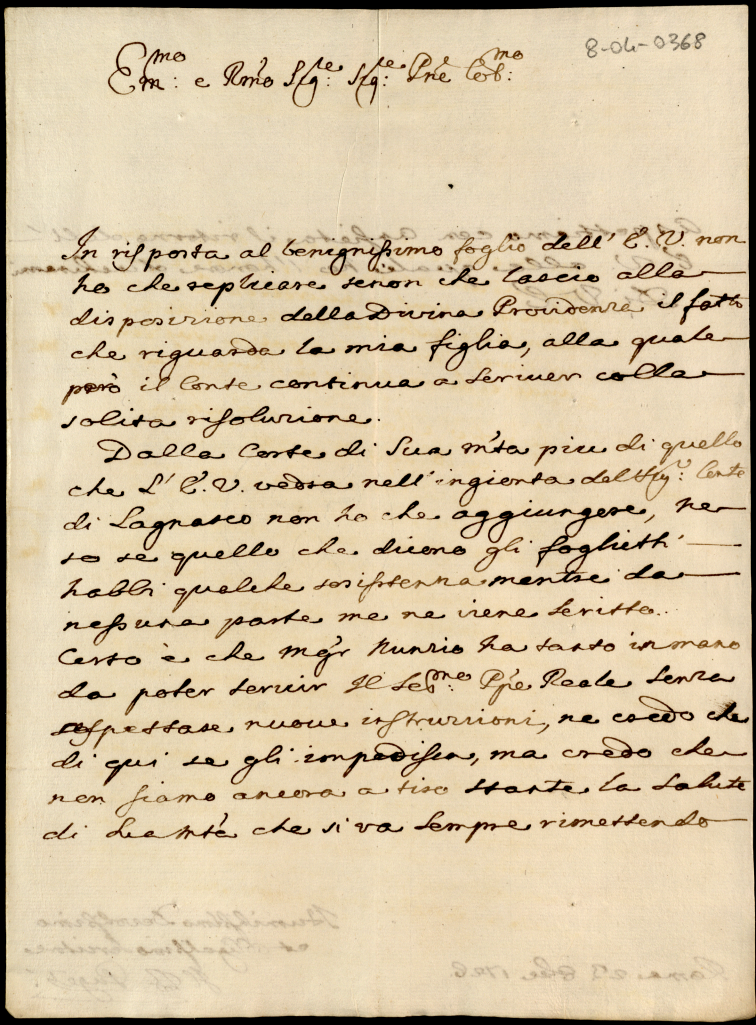 8-04-0368
Em:mo e Rmo Sig:re Sig:re Pne Col:mo
In risposta al benignissimo foglio dell' E. V. non
ho che replicare senon che lascio alla
disposizione della Divina Providenza il fatto
che riguarda la mia figlia, alla quale
però il Conte continua a scriver colla
solita risoluzione.
Dalla Corte di Sua Mtà piu di quello
che L' E. V. vedrà nell' ingionta del Sig.r Conte
di Lagnasco non ho che aggiungere, ne
so se quello che dicono gli foglietti
habbi qualche sussistenza mentre da
nessuna parte me ne viene scritto.
Certo è che Mgr Nunzio ha tanto in mano
da poter servir Il Ser:mo Ppe Reale senza
aspettare nuove instruzzioni, ne credo che
di qui se gli impedisca, ma credo che
non siamo ancora a tiro stante la salute
di Sua Mtà che si va sempre rimettendo